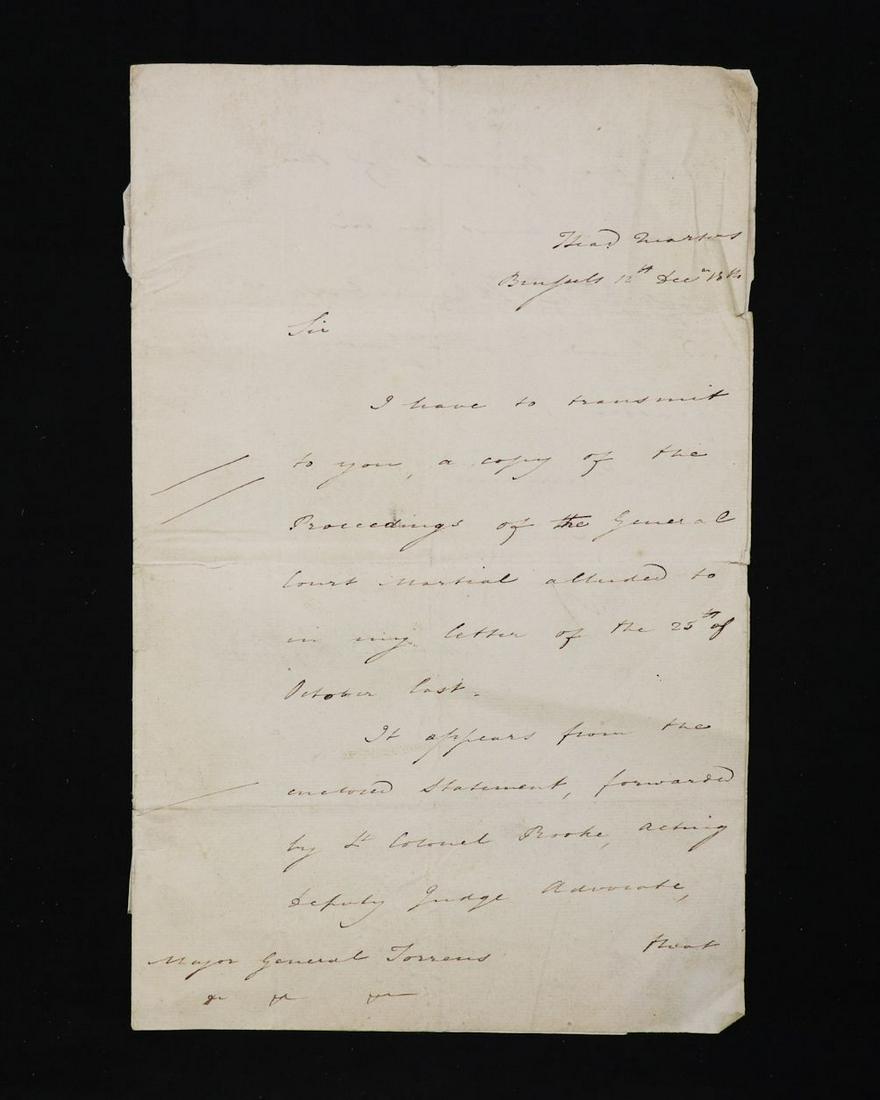 Head Quarters
Brussels 12th Decr 1814
Sir
I have to transmit
to you, a copy of the
Proceedings of the General
Court Martial alluded to
in my letter of the 25th of
October last.
It appears from the
enclosed Statement, forwarded
by Lt Colonel Brooke, acting
Deputy Judge Advocate,
that
Major General Torrens
&c &c &c